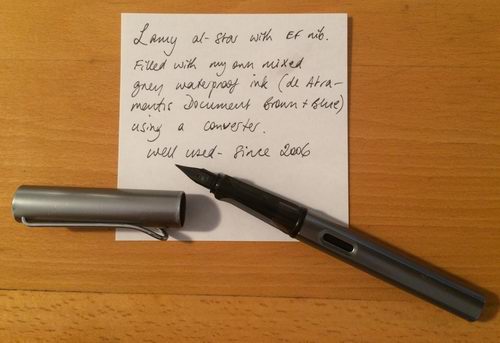 Lamy al-star with EF nib.
Filled with my own mixed
grey waterproof ink (de Atra-
mentis Document Brown + Blue)
using a converter.
Well used - since 2006